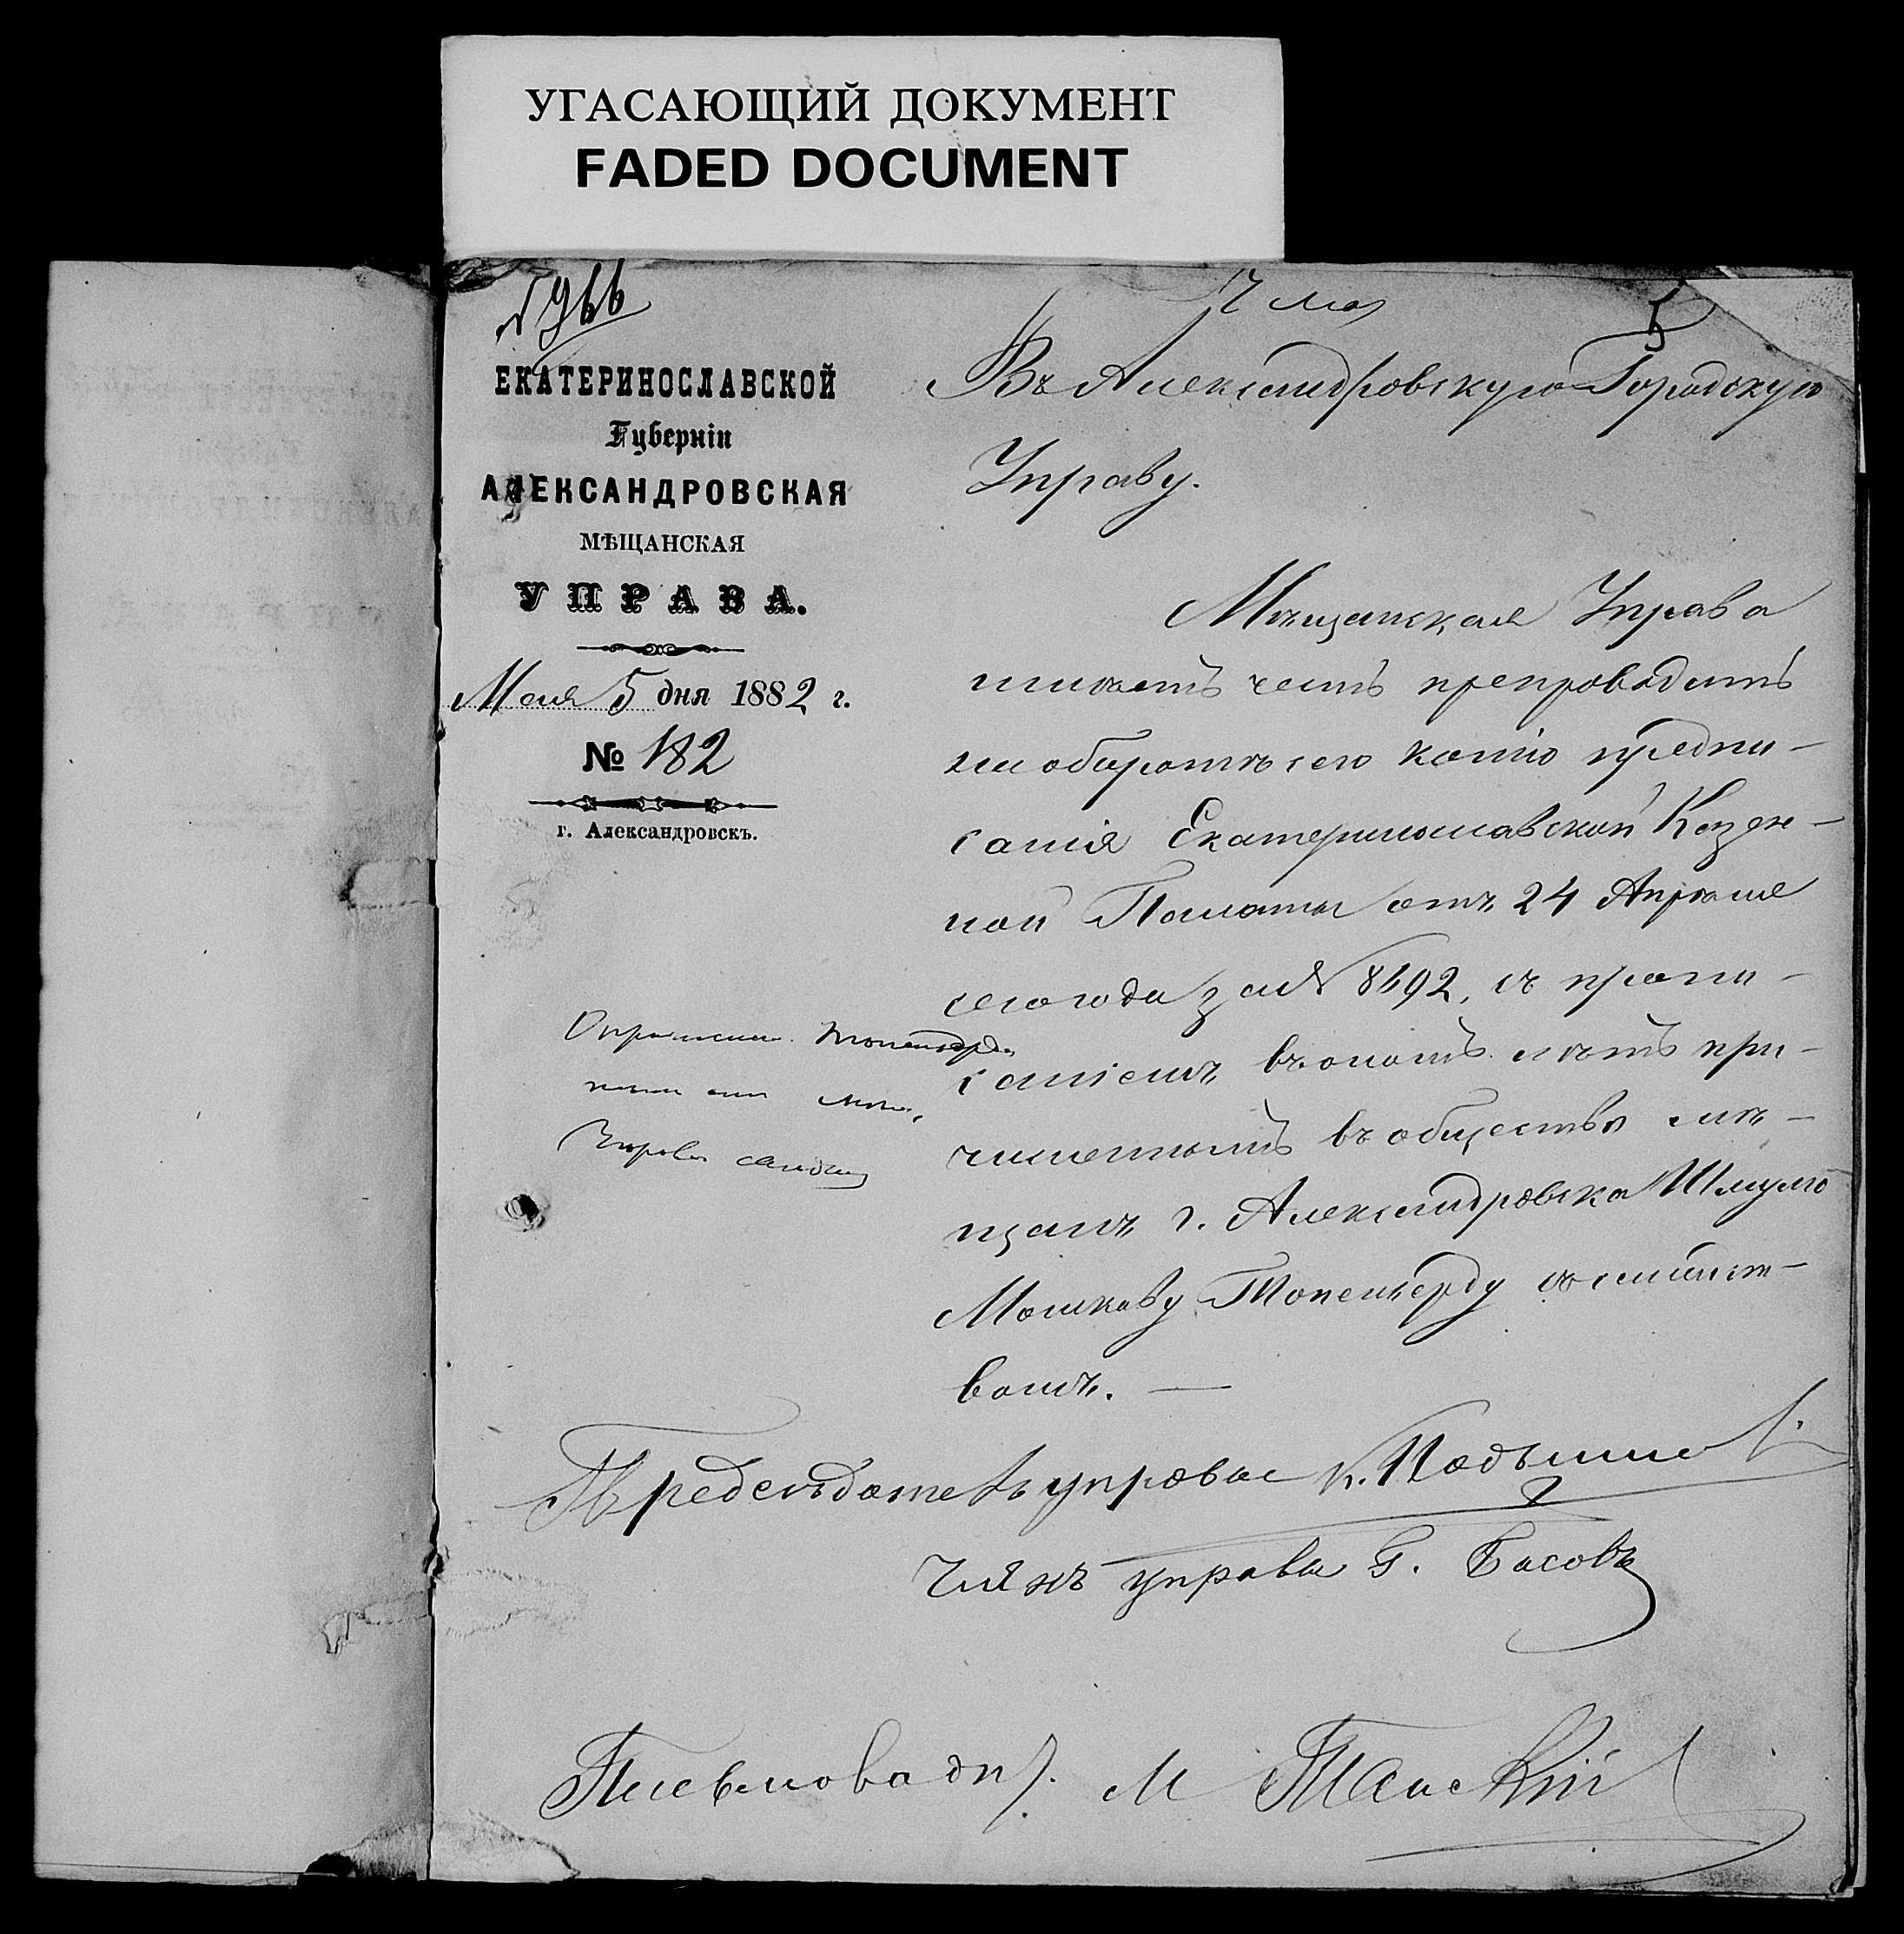 УГАСАЮЩИЙ ДОКУМЕНТ
FADED DOCUMENT
№ 966
7 мая
5
ЕКАТЕРИНОСЛАВСКОЙ
Губерніи
АЛЕКСАНДРОВСКАЯ
МѢЩАНСКАЯ
УПРАВА.
Мая 5 дня 1882 г.
№ 182
г. Александровскъ.
Въ Александровскую Городскую
Управу.
Мѣщанская Управа
имѣетъ честь препроводить
на оборотѣ сего копію предпи-
санія Екатеринославской Казен-
ной Палаты отъ 24 Апрѣля
сего года за № 8492, съ пропи-
саніемъ въ ономъ лѣтъ при-
численнымъ въ общество мѣ-
щанъ г. Александровска Шмулю
Мошкову Топенберду съ семейст-
вомъ. —
Предсѣдатель управы К.
Членъ управы Г. Басовъ
Письмовод. М